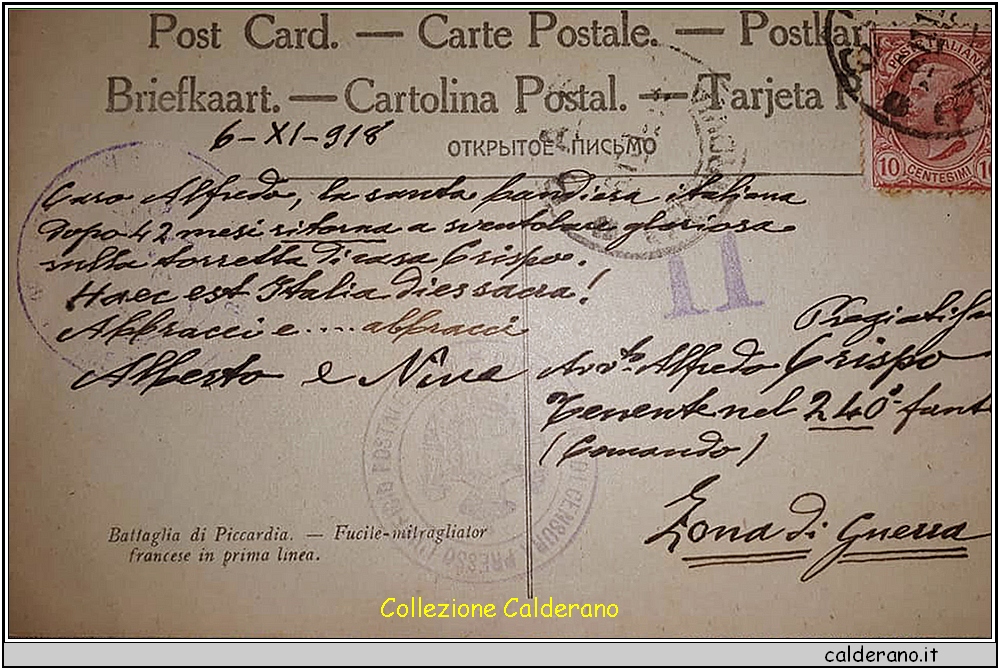 Post Card. — Carte Postale. — Postkar
Briefkaart. — Cartolina Postal. — Tarjeta
POSTE ITALIANE
10 CENTESIMI 10
6-XI-918
ОТКРЫТОЕ ПИСЬМО
Caro Alfredo, la santa bandiera italiana
dopo 42 mesi ritorna a sventolare gloriosa
sulla torretta di casa Crispo.
Haec est Italia dies sacra!
Abbracci e .... abbracci
Alberto e Nive
11
Avv.to Alfredo Crispo
Tenente nel 240° fant
(Comando)
Zona di Guerra
DI CENSURA PRESSO
Battaglia di Piccardia. — Fucile-mitragliator
francese in prima linea.
Collezione Calderano
calderano.it